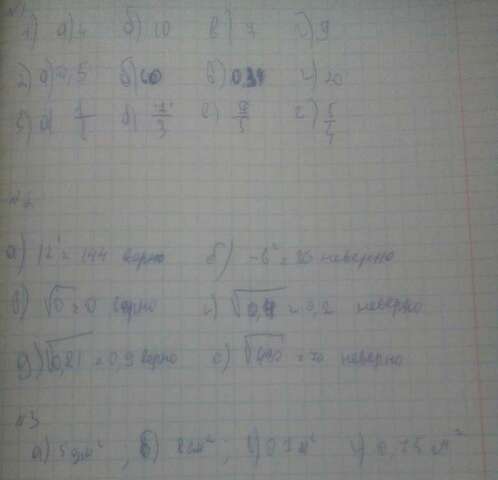 №1
1) а) 4 б) 10 в) 7 г) 9
2) а) 0,5 б) 60 в) 0,34 г) 20
3) а) б) в) г) 5/4
№2
а) 12² = 144 верно б) -6² = 36 неверно
в) √0 = 0 верно г) √0,4 = 0,2 неверно
д) √0,81 = 0,9 верно е) √490 = 70 неверно
№3
а) 5 дм², б) 8 см², в) 0,7 м² г) 0,25 м²